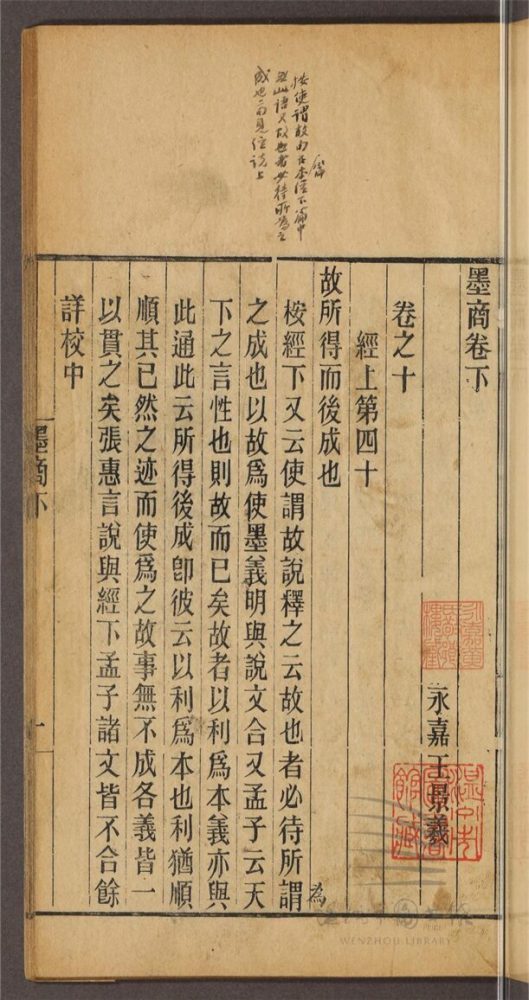 成也二句見經說上
墨商卷下
永嘉王景羲
卷之十
經上第四十
故所得而後成也
桉經下又云使謂故說釋之云故也者必待所謂
為
之成也以故爲使墨義明與說文合又孟子云天
下之言性也則故而已矣故者以利爲本義亦與
此通此云所得後成卽彼云以利爲本也利猶順
順其已然之迹而使爲之故事無不成各義皆一
以貫之矣張惠言說與經下孟子諸文皆不合餘
詳校中
墨商下
一
WENZHOU LIBRARY